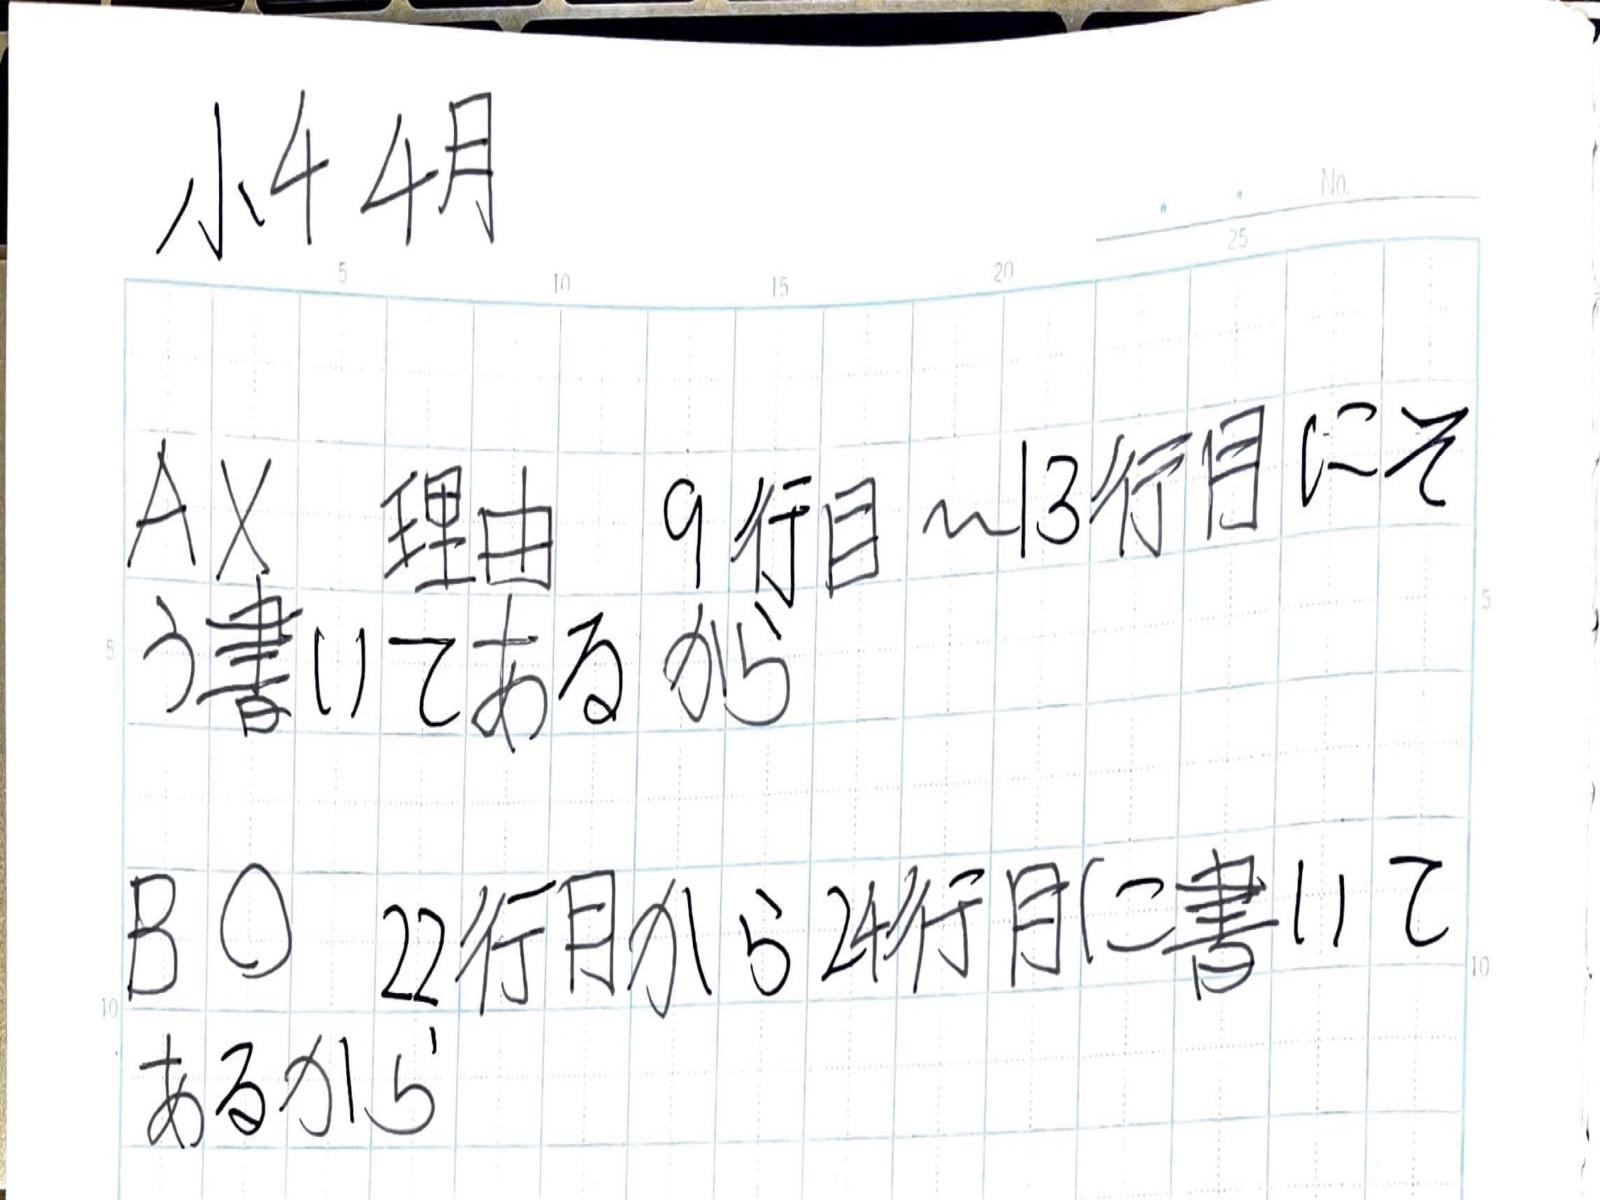 小4 4月
No.
5 10 15 20 25
AX 理由 9行目～13行目にそ
う書いてあるから
5 5
BO 22行目から24行目に書いて
10 10
あるから